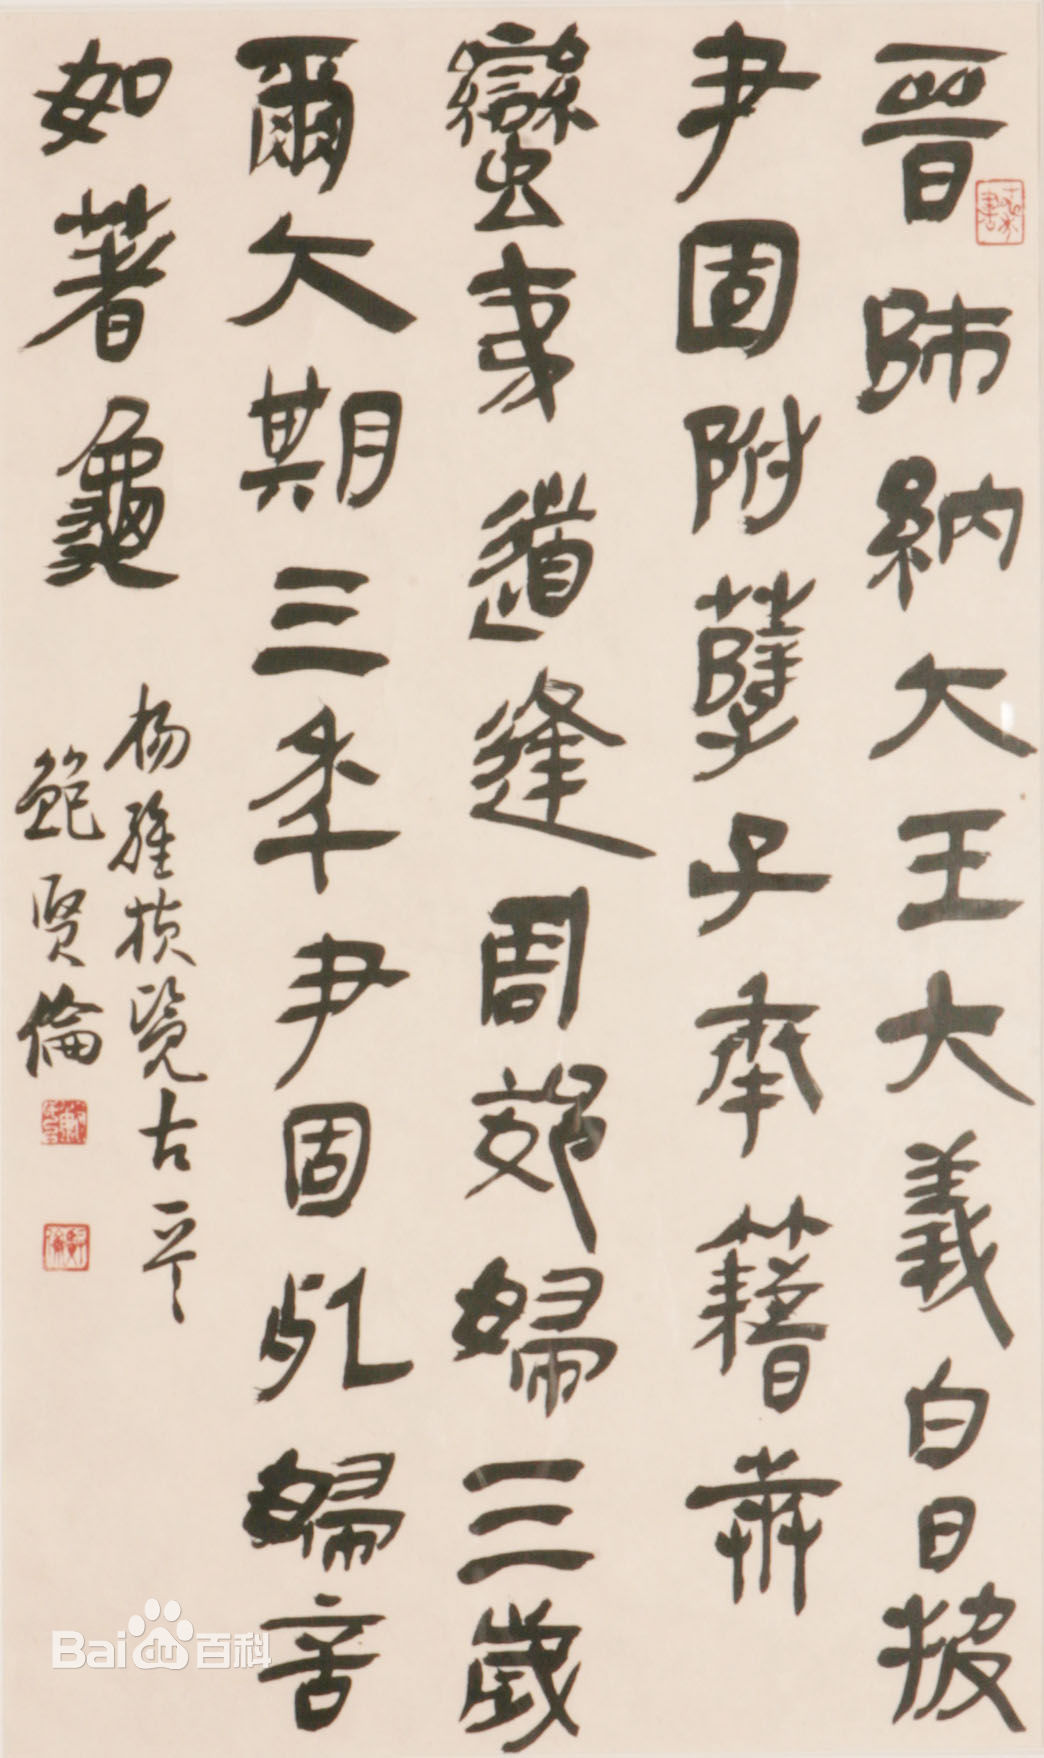 晉師納大王大義白日披
尹固附孽子奉籍奔
蠻夷道逢周郊婦三歲
爾大期三年尹固死婦言
如蓍龜
杨維楨覽古
鮑賢倫
Baidu百科